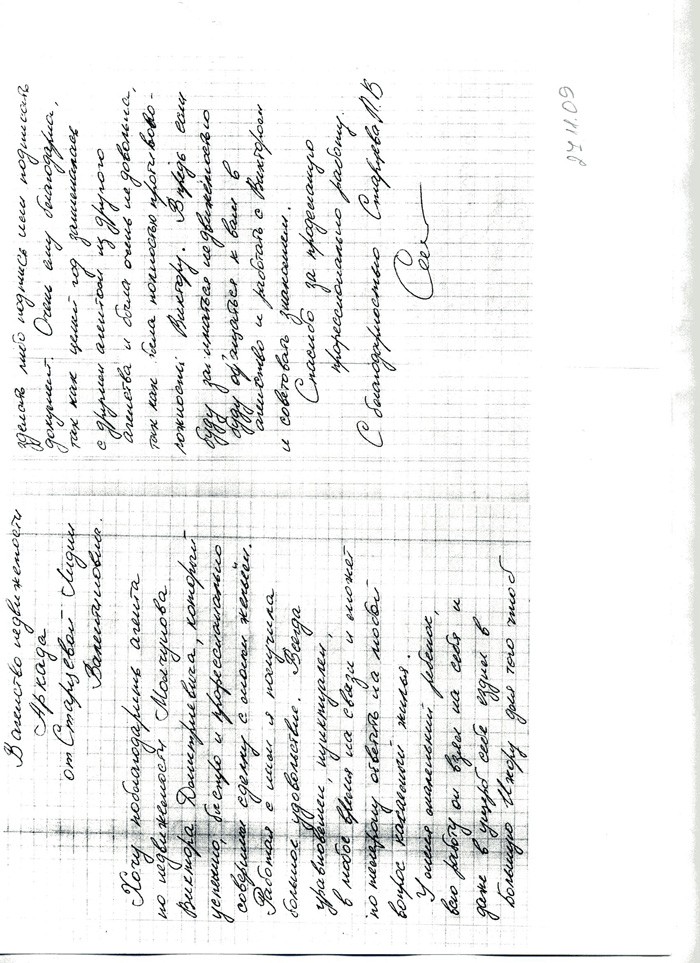 В агенство недвижемости
Аркада
от Старцевой Лидии
Валентиновна.
Хочу поблагодарить агента
по недвижемости Молчунова
Виктора Дмитриевича, который
успешно, быстро и профессионально
совершил сделку с моим жильём.
Работая с ним я получила
большое удовольствие. Всегда
уравновешен, пунктуален,
в любое время на связи и может
по телефону ответить на любой
вопрос касаемый жилья.
У меня маленький ребёнок,
всю работу он взял на себя и
даже в ущерб себе ездил в
большую Ижору для того чтоб
зделать либо подпись или подписать
документ. Очень ему благодарна,
так как целый год занималась
с другим агентом из другого
агенства и была очень недовольна,
так как была полностью противопо-
ложность Виктору. Впредь если
буду заниматься недвижемостью
буду обращаться к вам в
агенство и работать с Виктором
и советовать знакомым.
Спасибо за проделаную
професионально работу.
С благодарностью Старцева Л.В
27.11.09